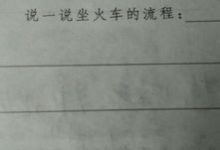 说一说坐火车的流程：